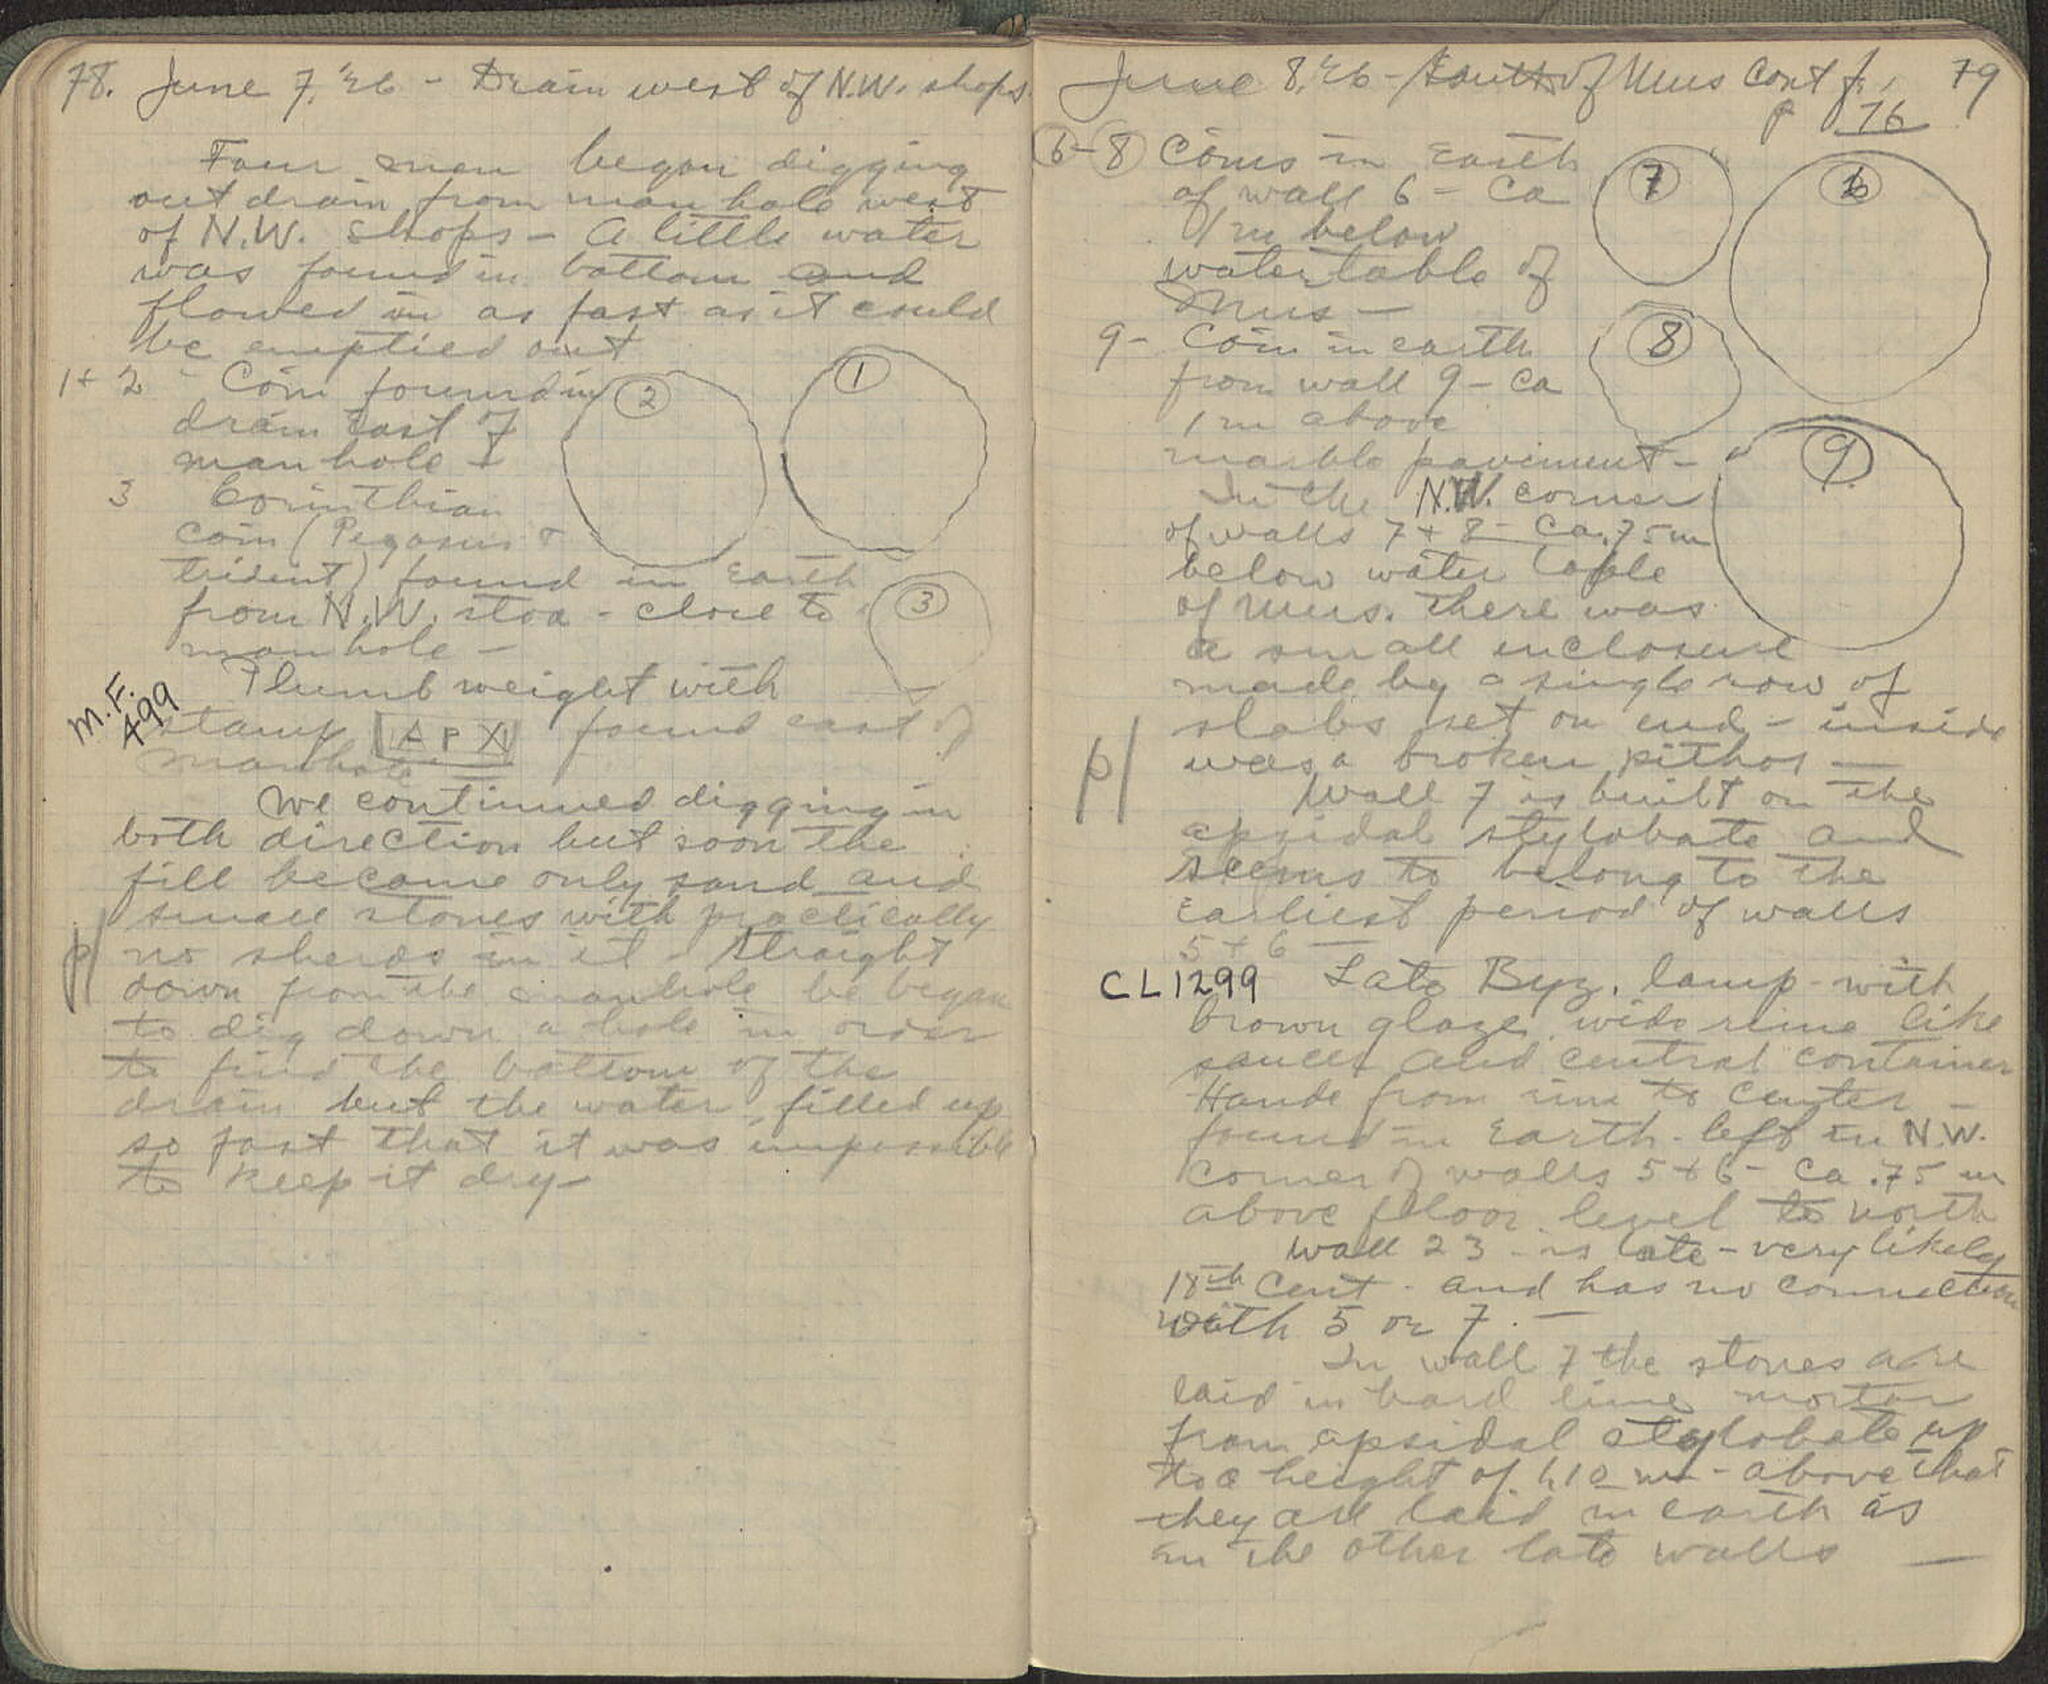 78. June 7, '26 - Drain west of N.W. shops.
Four men began digging
out drain from man hole west
of N.W. shops - A little water
was found in bottom and
flowed in as fast as it could
be emptied out
1+2 - Coin found in
drain East of
manhole -
3 Corinthian
coin (Pegasus +
trident) found in Earth
from N.W. stoa - close to
manhole -
② ① ③
Plumb weight with
M.F.
499
stamp A P X found east of
manhole
We continued digging in
both direction but soon the
fill became only sand and
small stones with practically
p/ no sherds in it - Straight
down from the manhole be began
to dig down a hole in order
to find the bottom of the
drain but the water filled up
so fast that it was impossible
to keep it dry -
June 8, '26 - South of Mus Cont f. 79
p 76
⑥-⑧ Coins in Earth
of wall 6 - Ca
1 m below
water table of
Mus -
9 - Coin in earth
from wall 9 - Ca
1 m above
marble paviment -
⑦ ⑥ ⑧ ⑨
In the N.W. corner
of walls 7 + 8 - Ca .75 m
below water table
of Mus. there was
a small enclosure
made by a single row of
slabs set on end - inside
p/ was a broken pithos -
Wall 7 is built on the
apsidal stylobate and
seems to belong to the
Earliest period of walls
5 + 6 -
CL1299 Late Byz. lamp - with
brown glaze wide rime like
saucer and central container
Hande from rim to center -
found in Earth left in N.W.
corner of walls 5 + 6 - Ca .75 m
above floor level to north
Wall 23 is late - very likely
18th Cent. and has no connection
with 5 or 7. -
In wall 7 the stones are
laid in hard lime mortar
from apsidal stylobate up
to a height of 1.10 m - above that
they are laid in earth as
in the other late walls -